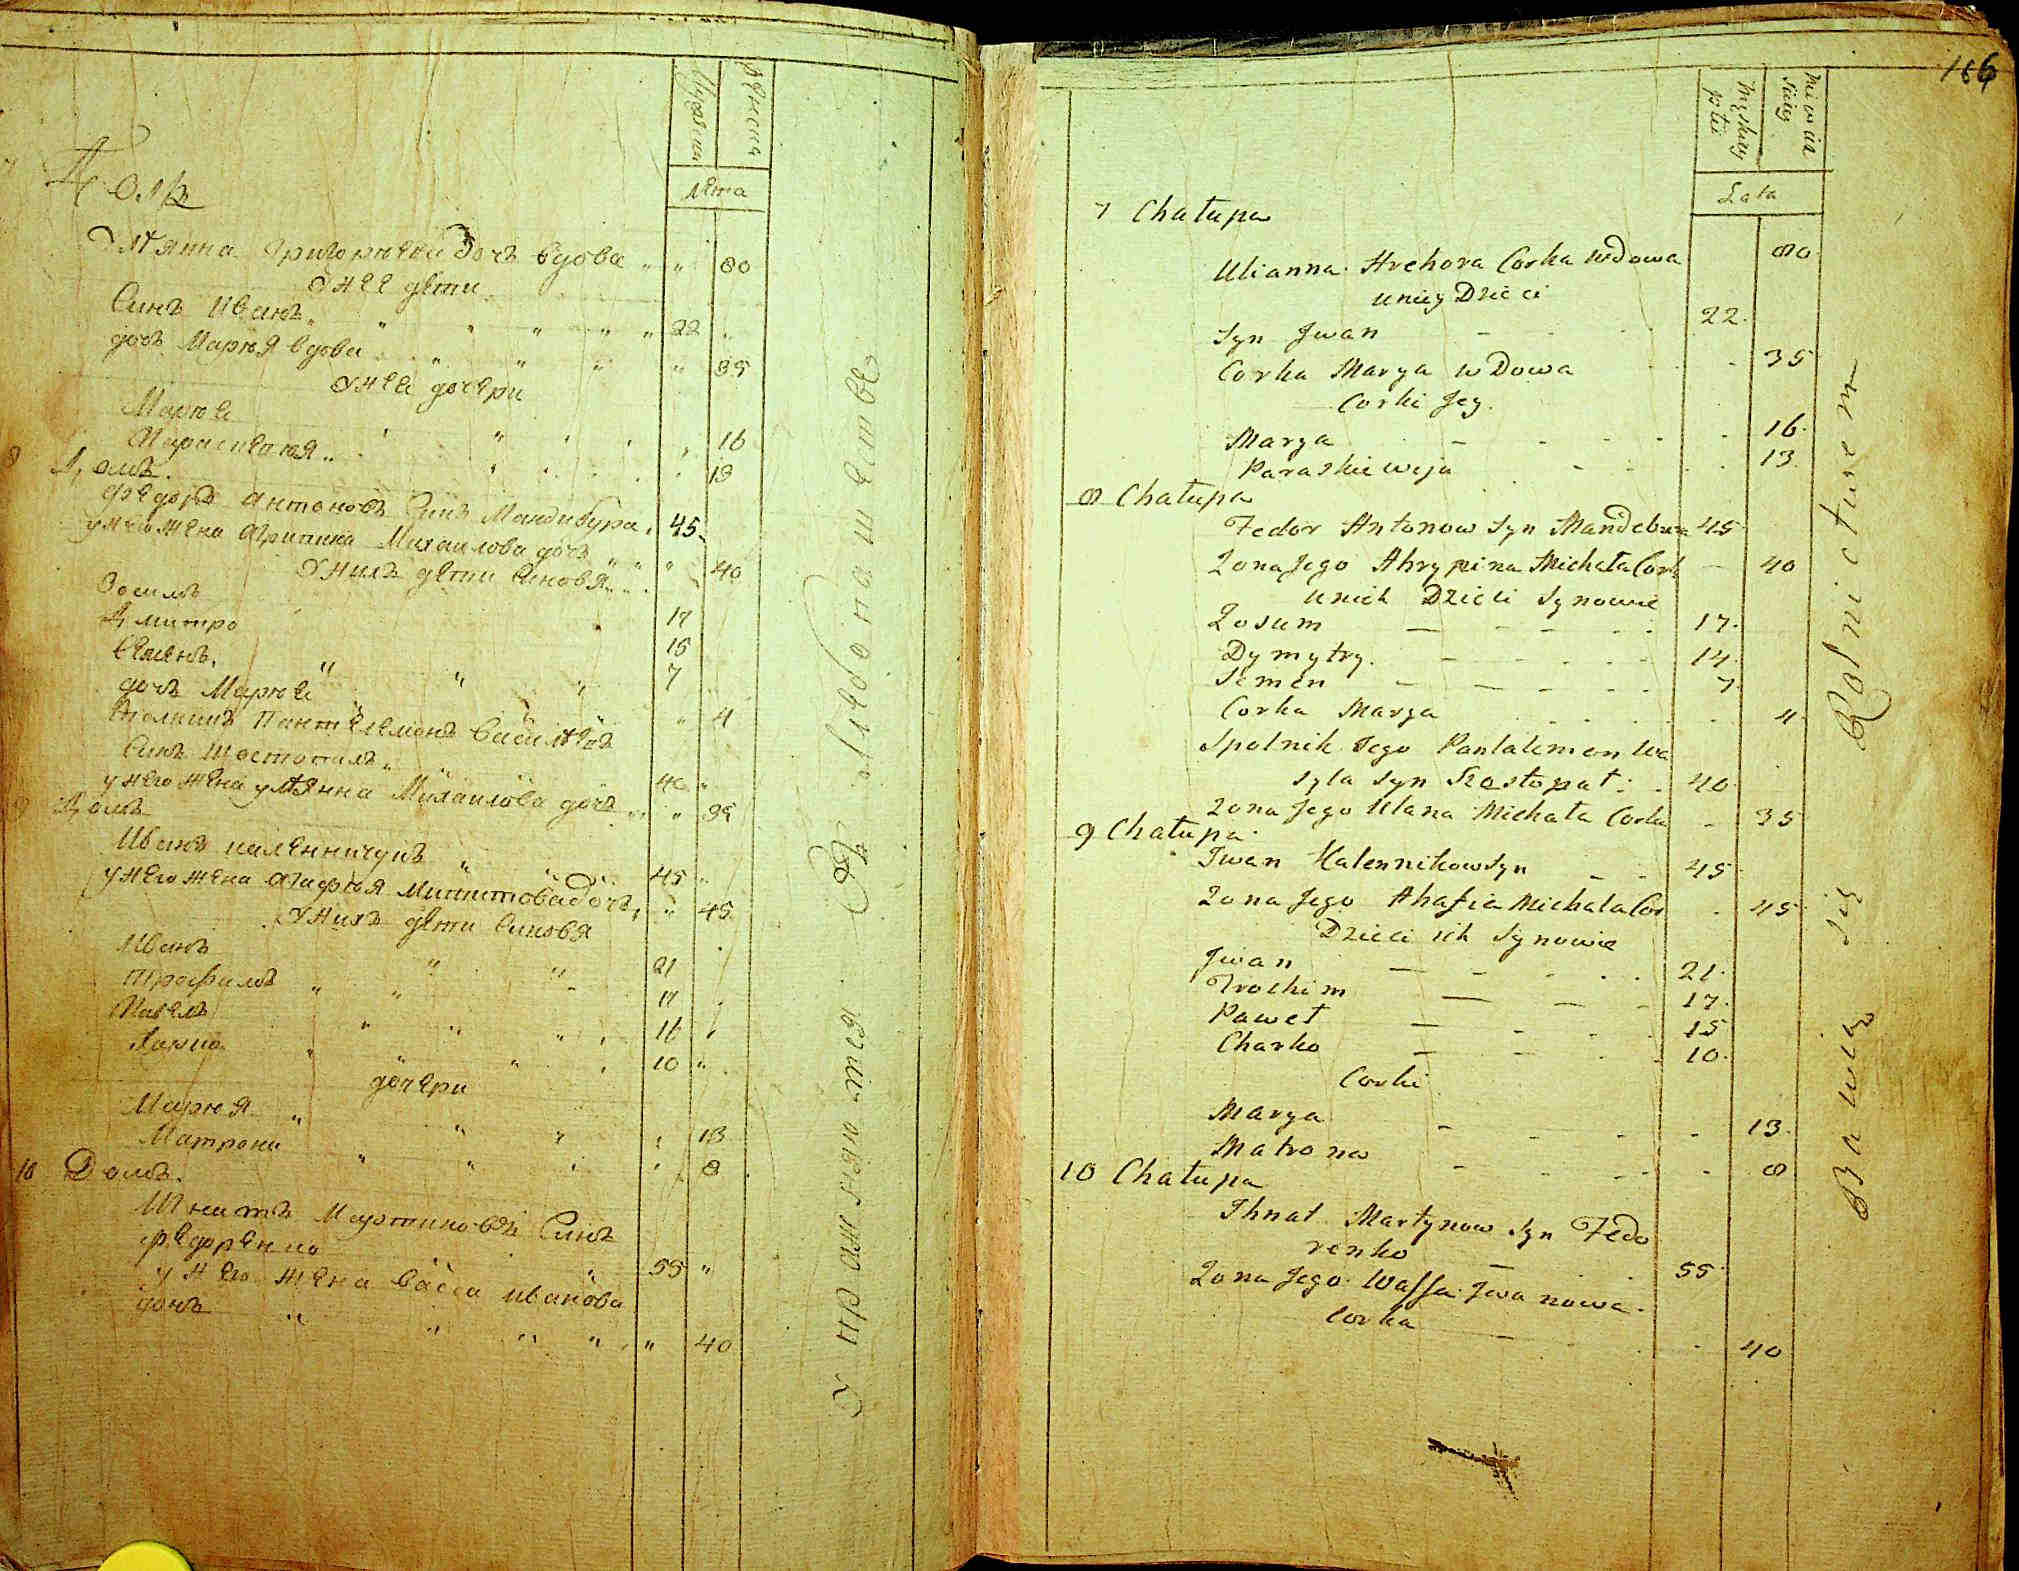 мужеска
женска
лѣта
Домъ
Улянна Григорьева дочъ вдова " " 80
У нее дѣти
Синъ Иванъ " " " " " " 22
дочъ Марья вдова " " " " 35
У неѣ дочери
Марья 16
Параскевия 13
8 Домъ.
Федоръ Антоновъ Синъ Мандибура 45
у него жена Агрипина Михаилова дочъ " " " 40
У нихъ дѣти Синовя
Зосимъ 17
Дмитро 15
Семенъ 7
дочъ Марья " 4
Пантелемонъ Василѣвъ
Синъ Шостопалъ 40 "
у него жена улянна Михаилова дочъ " 35
9 Домъ
Иванъ 45 "
у него жена Агафия дочъ " 45
У нихъ дѣти Синовя
Иванъ 21
Трофимъ 17
Павелъ 16
Харко 10 "
дочери
Марья 13
Матрона 8
10 Домъ.
Игнатъ Мартиновъ Синъ
Федоренко 55 "
у него жена Васса Иванова
дочъ " " " " " 40
Упражняются въ хлѣбопашествѣ
166
Męskiey płci
Niewieściey
Lata
7 Chałupa
Ulianna Hrehora Corka wdowa 80
u niey Dzieci
Syn Jwan 22
Corka Marya wDowa 35
Corki Jey
Marya 16
Paraskiewija 13
8 Chałupa
Fedor Antonow Syn Mandebura 45
Zona Jego Ahrypina Michała Cork 40
u nich Dzieci Synowie
Zosum 17
Dymytry 14
Semen 7
Corka Marya 4
Spolnik Jego Pantalemon Wa
syla Syn Szostopał 40
Zona Jego Ulana Michała Corka 35
9 Chałupa
Jwan Kalennikow Syn 45
Zona Jego Ahafia Michała Cor 45
Dzieci ich Synowie
Jwan 21
Trochim 17
Paweł 15
Charko 10
Corki
Marya 13
Matrona 8
10 Chałupa
Jhnat Martynow Syn Fedo
renko 55
Zona Jego Wassa Jwanowa
Corka 40
Bawią się Rolnictwem